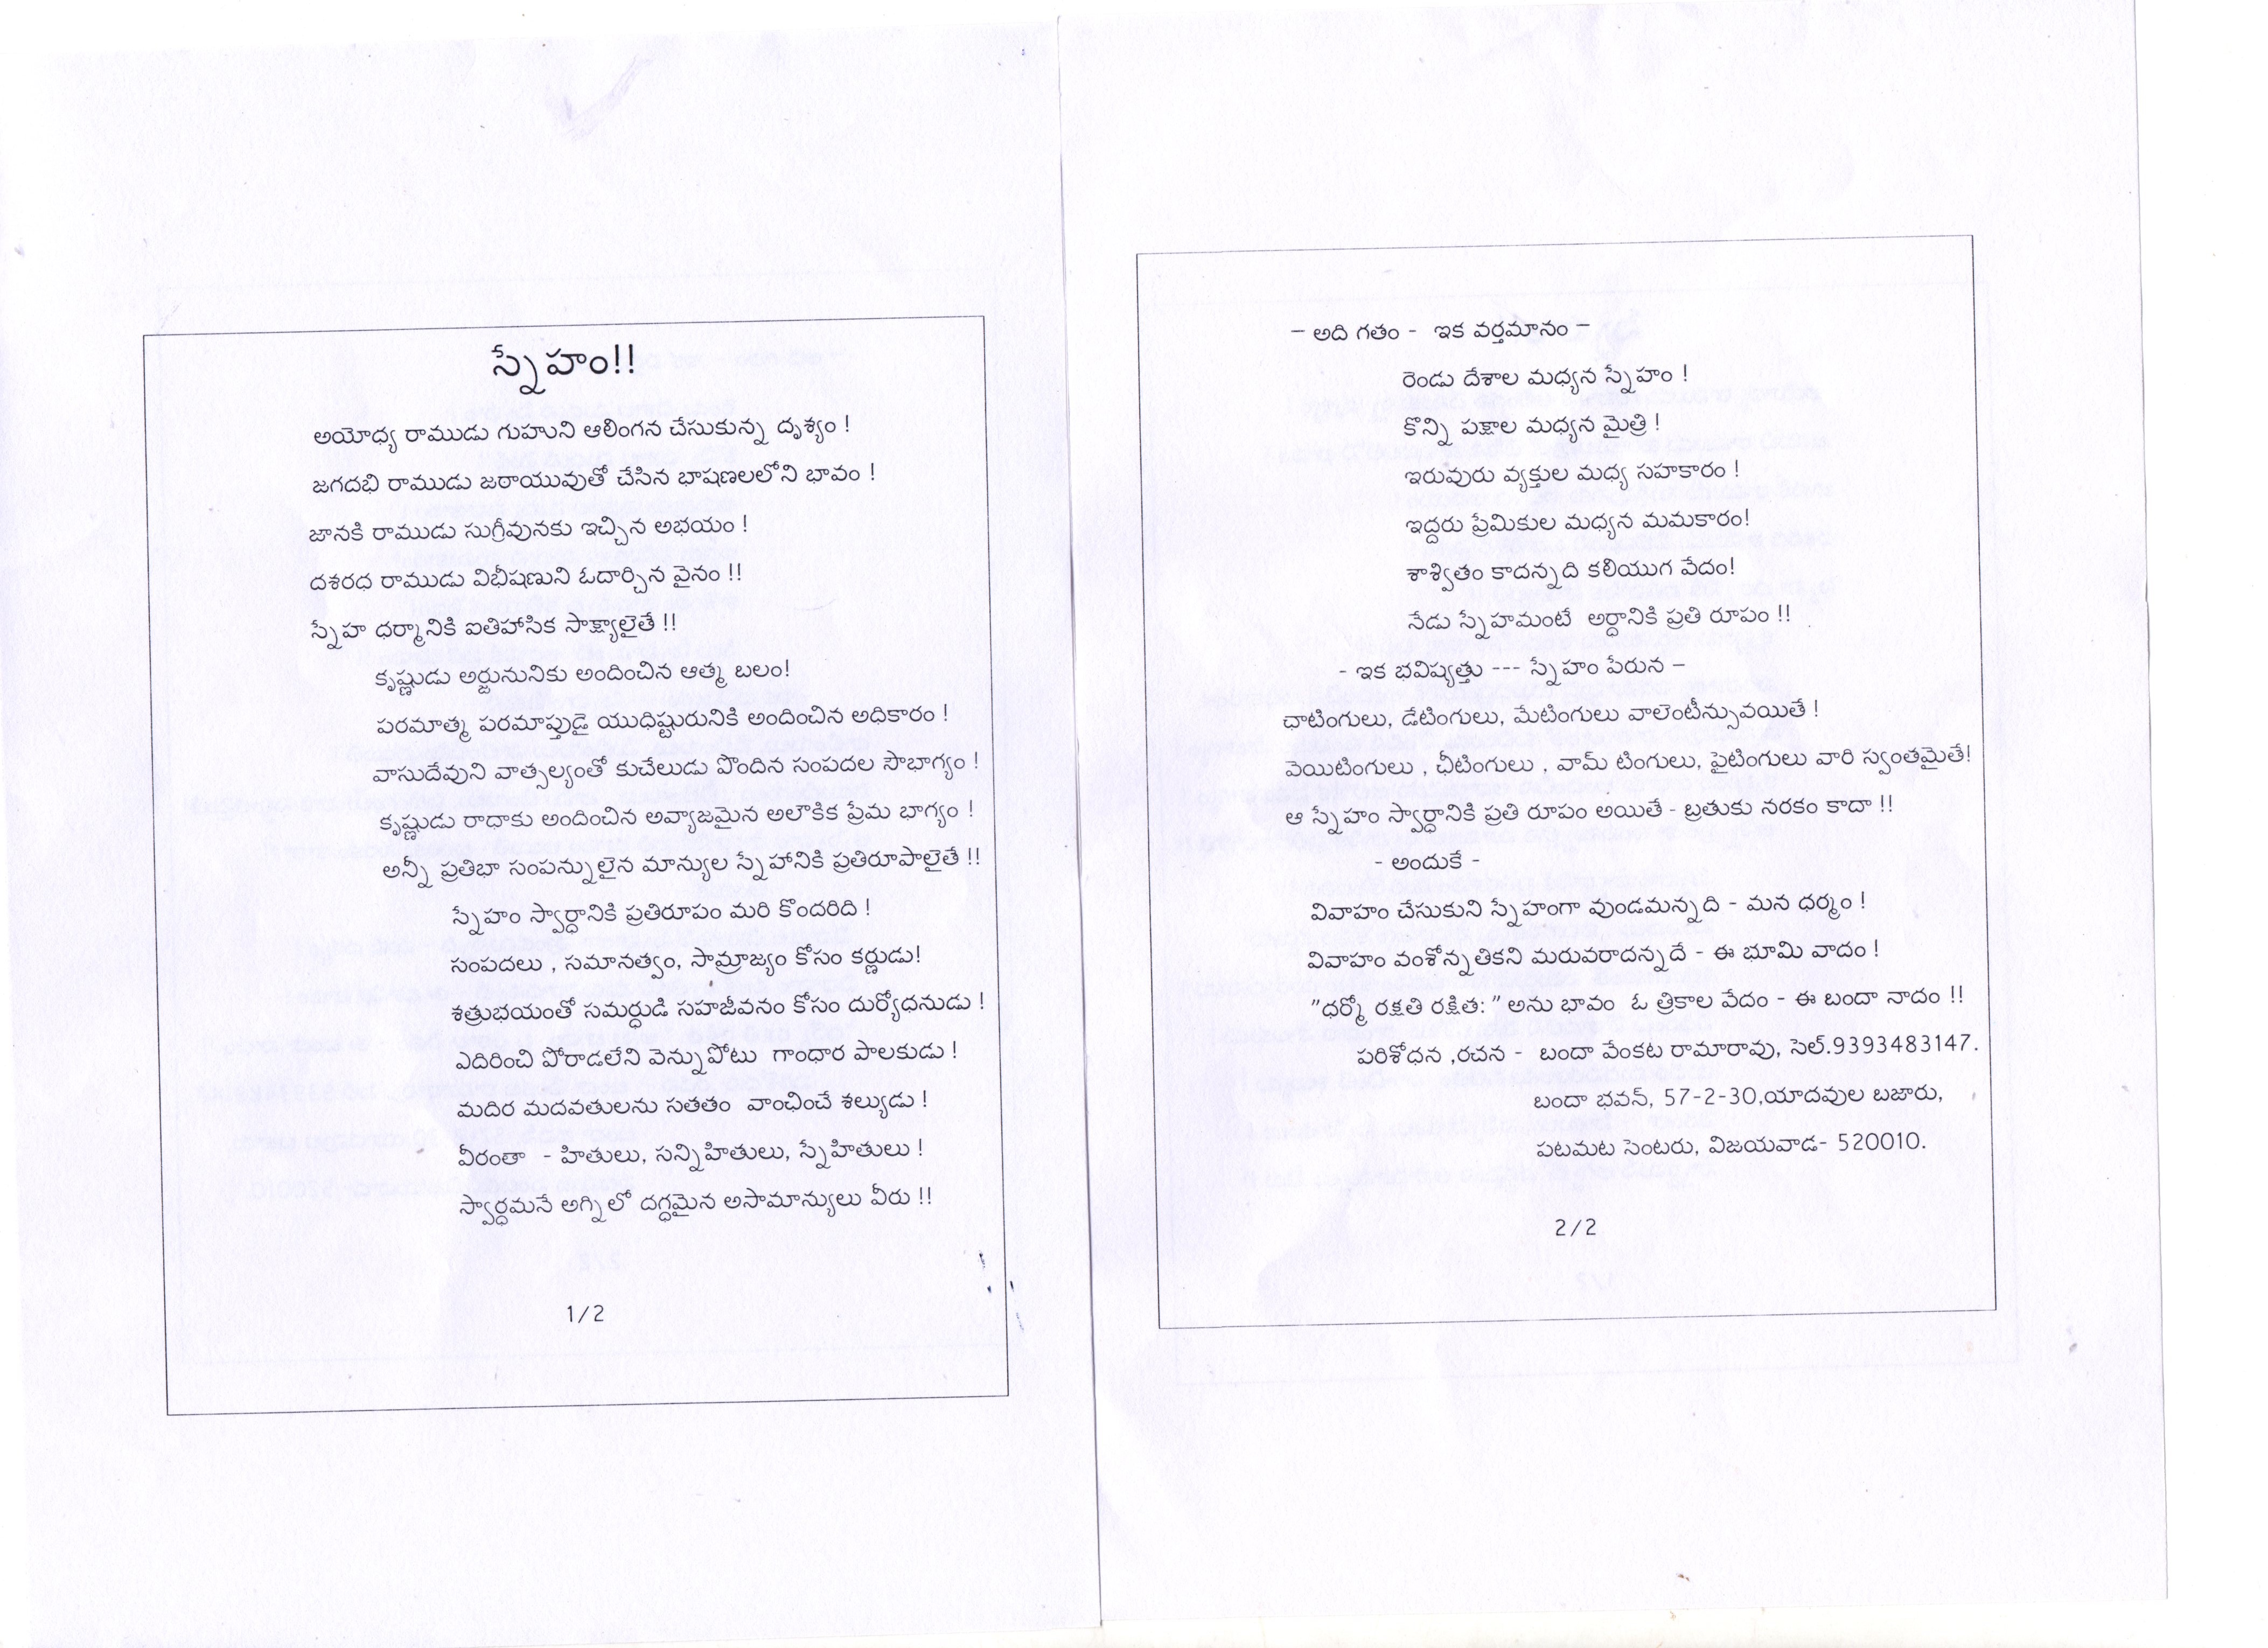 స్నేహం!!
అయోధ్య రాముడు గుహుని ఆలింగన చేసుకున్న దృశ్యం !
జగదభి రాముడు జఠాయువుతో చేసిన భాషణలలోని భావం !
జానకి రాముడు సుగ్రీవునకు ఇచ్చిన అభయం !
దశరధ రాముడు విభీషణుని ఓదార్చిన వైనం !!
స్నేహ ధర్మానికి ఐతిహాసిక సాక్ష్యాలైతే !!
కృష్ణుడు అర్జునునికు అందించిన ఆత్మ బలం!
పరమాత్మ పరమాప్తుడై యుధిష్టురునికి అందించిన అధికారం !
వాసుదేవుని వాత్సల్యంతో కుచేలుడు పొందిన సంపదల సౌభాగ్యం !
కృష్ణుడు రాధాకు అందించిన అవ్యాజమైన అలౌకిక ప్రేమ భాగ్యం !
అన్నీ ప్రతిభా సంపన్నులైన మాన్యుల స్నేహానికి ప్రతిరూపాలైతే !!
స్నేహం స్వార్ధానికి ప్రతిరూపం మరి కొందరిది !
సంపదలు , సమానత్వం, సామ్రాజ్యం కోసం కర్ణుడు!
శత్రుభయంతో సమర్ధుడి సహజీవనం కోసం దుర్యోధనుడు !
ఎదిరించి పోరాడలేని వెన్నుపోటు గాంధార పాలకుడు !
మదిర మదవతులను సతతం వాంఛించే శల్యుడు !
వీరంతా - హితులు, సన్నిహితులు, స్నేహితులు !
స్వార్ధమనే అగ్నిలో దగ్ధమైన అసామాన్యులు వీరు !!
1/2
– అది గతం - ఇక వర్తమానం –
రెండు దేశాల మధ్యన స్నేహం !
కొన్ని పక్షాల మధ్యన మైత్రి !
ఇరువురు వ్యక్తుల మధ్య సహకారం !
ఇద్దరు ప్రేమికుల మధ్యన మమకారం!
శాశ్వితం కాదన్నది కలియుగ వేదం!
నేడు స్నేహమంటే అర్ధానికి ప్రతి రూపం !!
- ఇక భవిష్యత్తు --- స్నేహం పేరున –
ఛాటింగులు, డేటింగులు, మేటింగులు వాలెంటీన్సువయితే !
వెయిటింగులు , ఛీటింగులు , వామ్ టింగులు, ఫైటింగులు వారి స్వంతమైతే!
ఆ స్నేహం స్వార్ధానికి ప్రతి రూపం అయితే - బ్రతుకు నరకం కాదా !!
- అందుకే -
వివాహం చేసుకుని స్నేహంగా వుండమన్నది - మన ధర్మం !
వివాహం వంశోన్నతికని మరువరాదన్నదే - ఈ భూమి వాదం !
”ధర్మో రక్షతి రక్షిత: ” అను భావం ఓ త్రికాల వేదం - ఈ బందా నాదం !!
పరిశోధన ,రచన - బందా వేంకట రామారావు, సెల్.9393483147.
బందా భవన్, 57-2-30,యాదవుల బజారు,
పటమట సెంటరు, విజయవాడ- 520010.
2/2